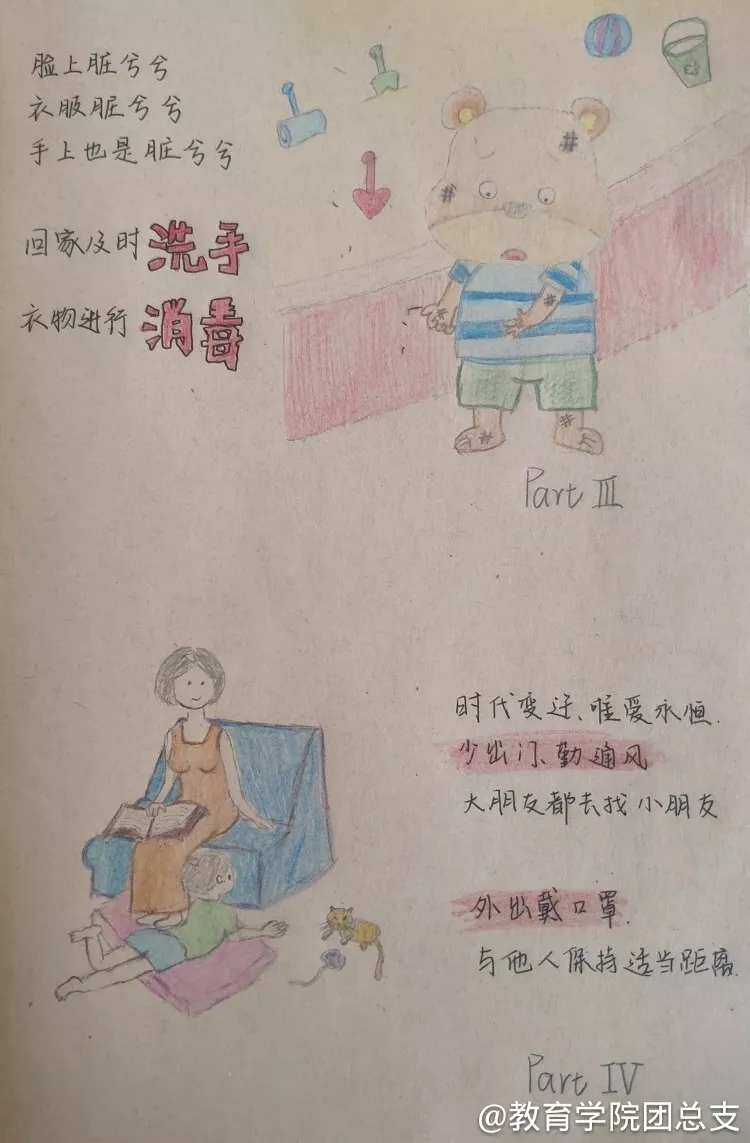 脸上脏兮兮
衣服脏兮兮
手上也是脏兮兮
回家及时洗手
衣物进行消毒
Part III
时代变迁、唯爱永恒.
少出门、勤通风
大朋友都去找小朋友
外出戴口罩.
与他人保持适当距离.
Part IV
@教育学院团总支